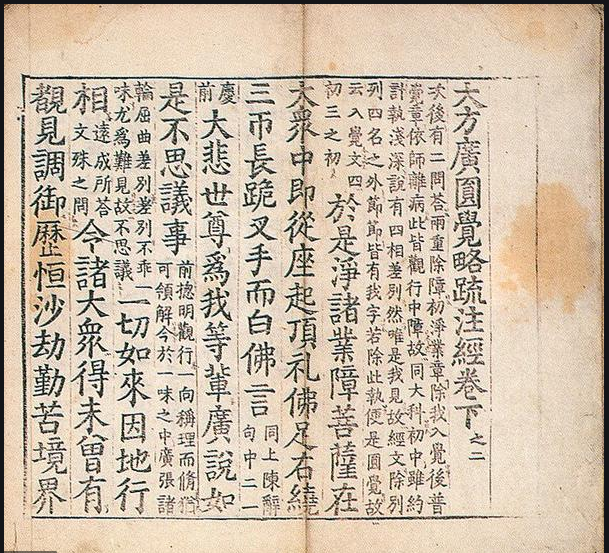 大方廣圓覺略疏注經卷下之二
次後有二問荅兩重除障初淨業章除我入覺後普
覺章依師離病此皆觀行中障故同大科初中雖約
計執淺深說有四相差別然唯是我見故經文除別
列四名之外節節皆有我字若除此執便是圓覺故
云入覺文四
初三之初
於是淨諸業障菩薩在
大衆中即從座起頂礼佛足右繞
三帀長跪叉手而白佛言
同上陳辭
句中二一
慶
前
大悲世尊爲我等輩廣說如
是不思議事
前揔明觀行一向稱理而脩猶
可領解今於一味之中廣張諸
輪屈曲差別差別不乖一
味尤爲難見故不思議
一切如來因地行
相
達成所荅
文殊之問
令諸大衆得未曾有
覩見調御歴恒沙劫勤苦境界